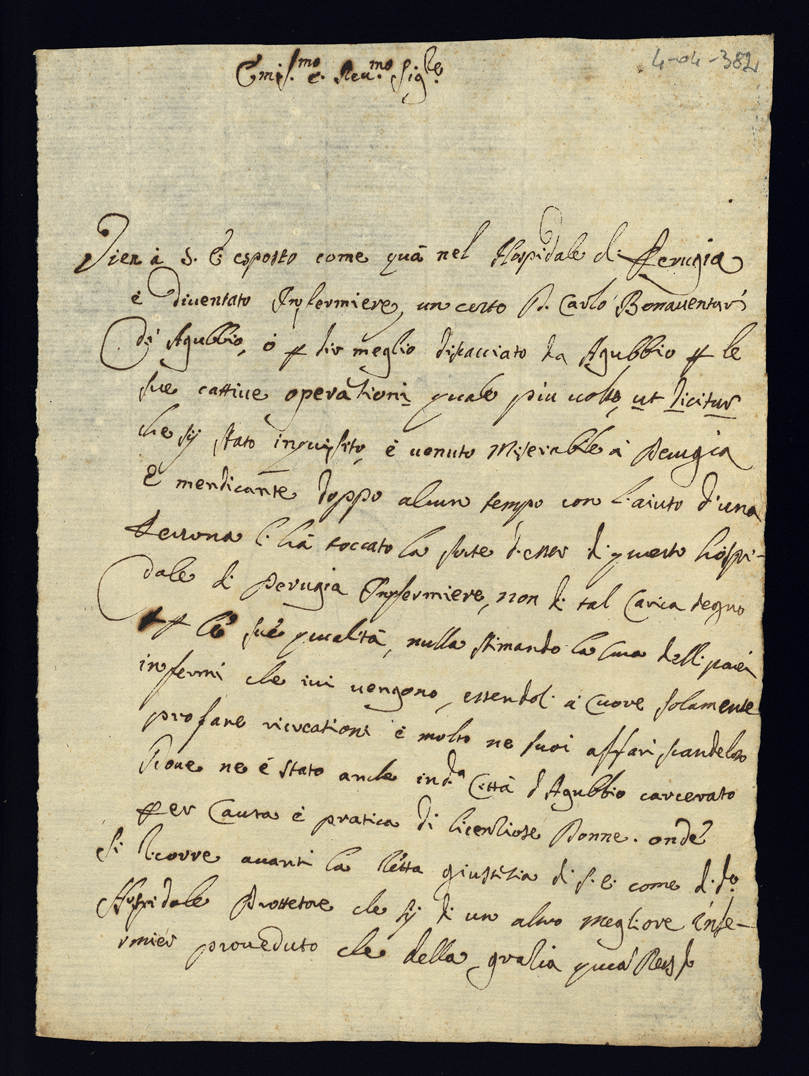 Em.mo e Reu.mo Sig.re
4-04-382
Vien à S. E. esposto come quà nel Hospidale di Perugia
è diventato Infermiere, un certo D. Carlo Bonauenturi
di Agubbio, ò p dir meglio discacciato da Agubbio p le
sue cattiue operationi quale piu uolte, ut dicitur
che sij stato inquisito, è uenuto Miserabile à Perugia
E mendicante doppo alcun tempo con l'aiuto d'una
Persona li hà toccato la sorte d'esser di questo hospi-
dale di Perugia Infermiere, non di tal Carica degno
p le sue qualità, nulla stimando la Cura delli poueri
infermi che iui uengono, essendoli à Cuore solamente
profane ricreationi è molto ne suoi affari scandeloso
Doue ne è stato anche in d.a Città d'Agubbio carcerato
per Causa è pratica di licentiose Donne. onde
Si ricorre auanti la retta giustitia di S. E. come di d.o
Hospidale Prottetore che sij di un altro megliore infe-
rmier proueduto che della gratia quà